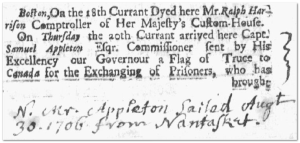 Boston, On the 18th Currant Dyed here Mr. Ralph Har-
rison Comptroller of Her Majesty's Custom-House.
On Thursday the 20th Currant arrived here Capt.
Samuel Appleton Esqr. Commissioner sent by His
Excellency our Governour a Flag of Truce to
Canada for the Exchanging of Prisoners, who has
brough.
N. Mr. Appleton Sailed Augt
30. 1706. from Nantasket.